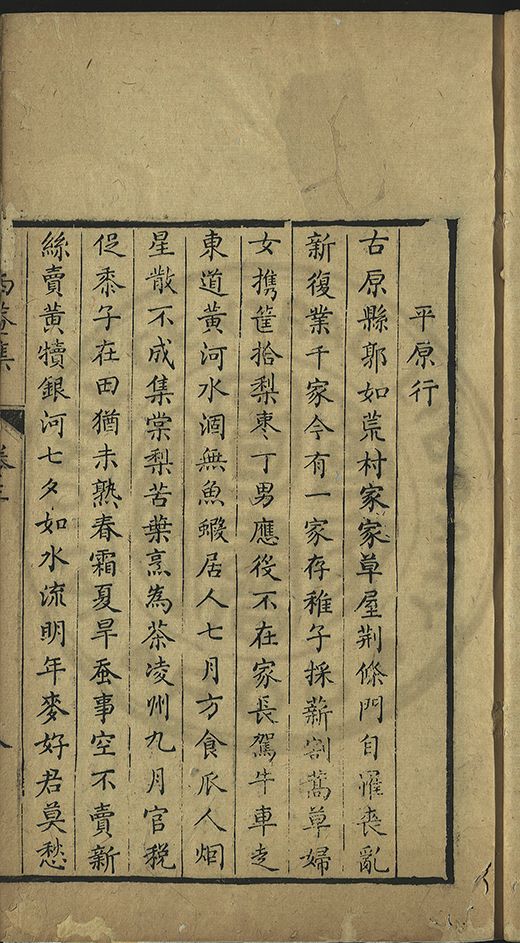 平原行
古原縣郭如荒村家家草屋荆條門自罹喪亂
新復業千家今有一家存稚子採薪割蒿草婦
女携筐拾梨棗丁男應役不在家長駕牛車走
東道黄河水涸無魚蝦居人七月方食瓜人烟
星散不成集棠梨苦葉烹為茶凌州九月官税
促黍子在田猶未熟春霜夏旱蚕事空不賣新
絲賣黄犢銀河七夕如水流明年麥好君莫愁
西菴集 卷三
八